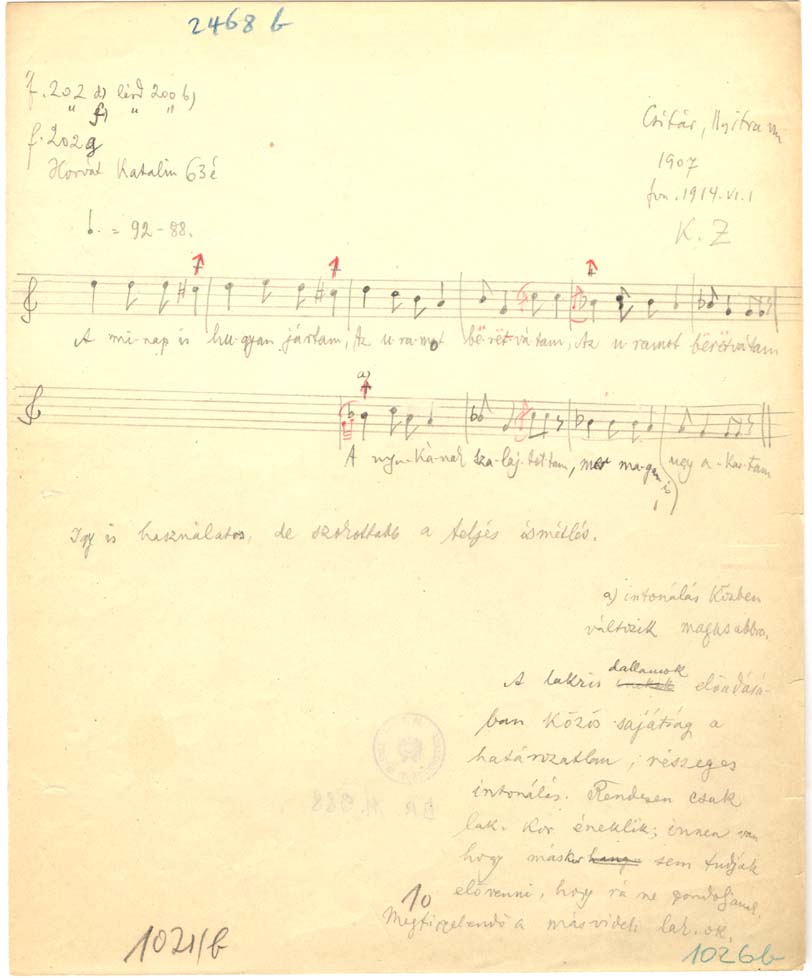 2468 b
f. 202 d) lásd 200 b)
" f) " "
f. 202 g
Horvát Katalin 63 é
Csitár, Nyitra m
1907
fon. 1914. VI. 1
K. Z
= 92-88.
A mi-nap is hu-gyan jártam, Az u-ra-mot bë-rët-vá-tam, Az u-ramot bërëtvátam
a)
A nyu-ká-nak sza-laj-tottam, mer ma-gam is ugy a-kar-tam
Igy is használatos, de szokottabb a teljés ismétlés.
a) intonálás közben
változik magasabbra.
A lakzis dallamok előadásá-
ban közös sajátság a
határozatlan, részeges
intonálás. Rendesen csak
lak. kor éneklik; innen van
hogy máskor sem tudják
elővenni, hogy rá ne gondoljanak.
10
Megfigyelendő a másvidéki lak. ok.
1021/b
1026b